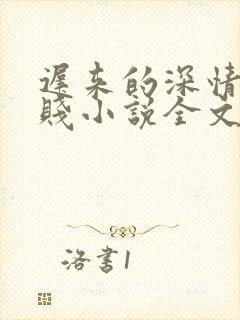 遲来的深情
賤小説全文
洛書1